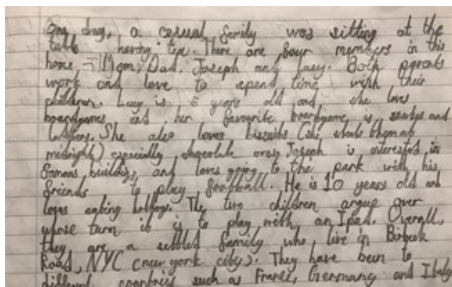 One day, a casual family was sitting at the
table having tea. There are four members in this
home - Mom, Dad, Joseph and Lucy. Both parents
work and love to spend time with their
children. Lucy is 5 years old and she loves
boardgames and her favourite boardgame is snakes and
ladders. She also loves biscuits (she steals them at
midnight) especially chocolate ones. Joseph is interested in
famous buildings and loves going to the park with his
friends to play football. He is 10 years old and
loves eating lollies. The two children argue over
whose turn it is to play with an Ipad. Overall,
they are a settled family who live in
Road, NYC (new york city). They have been to
different countries such as France, Germany and Italy